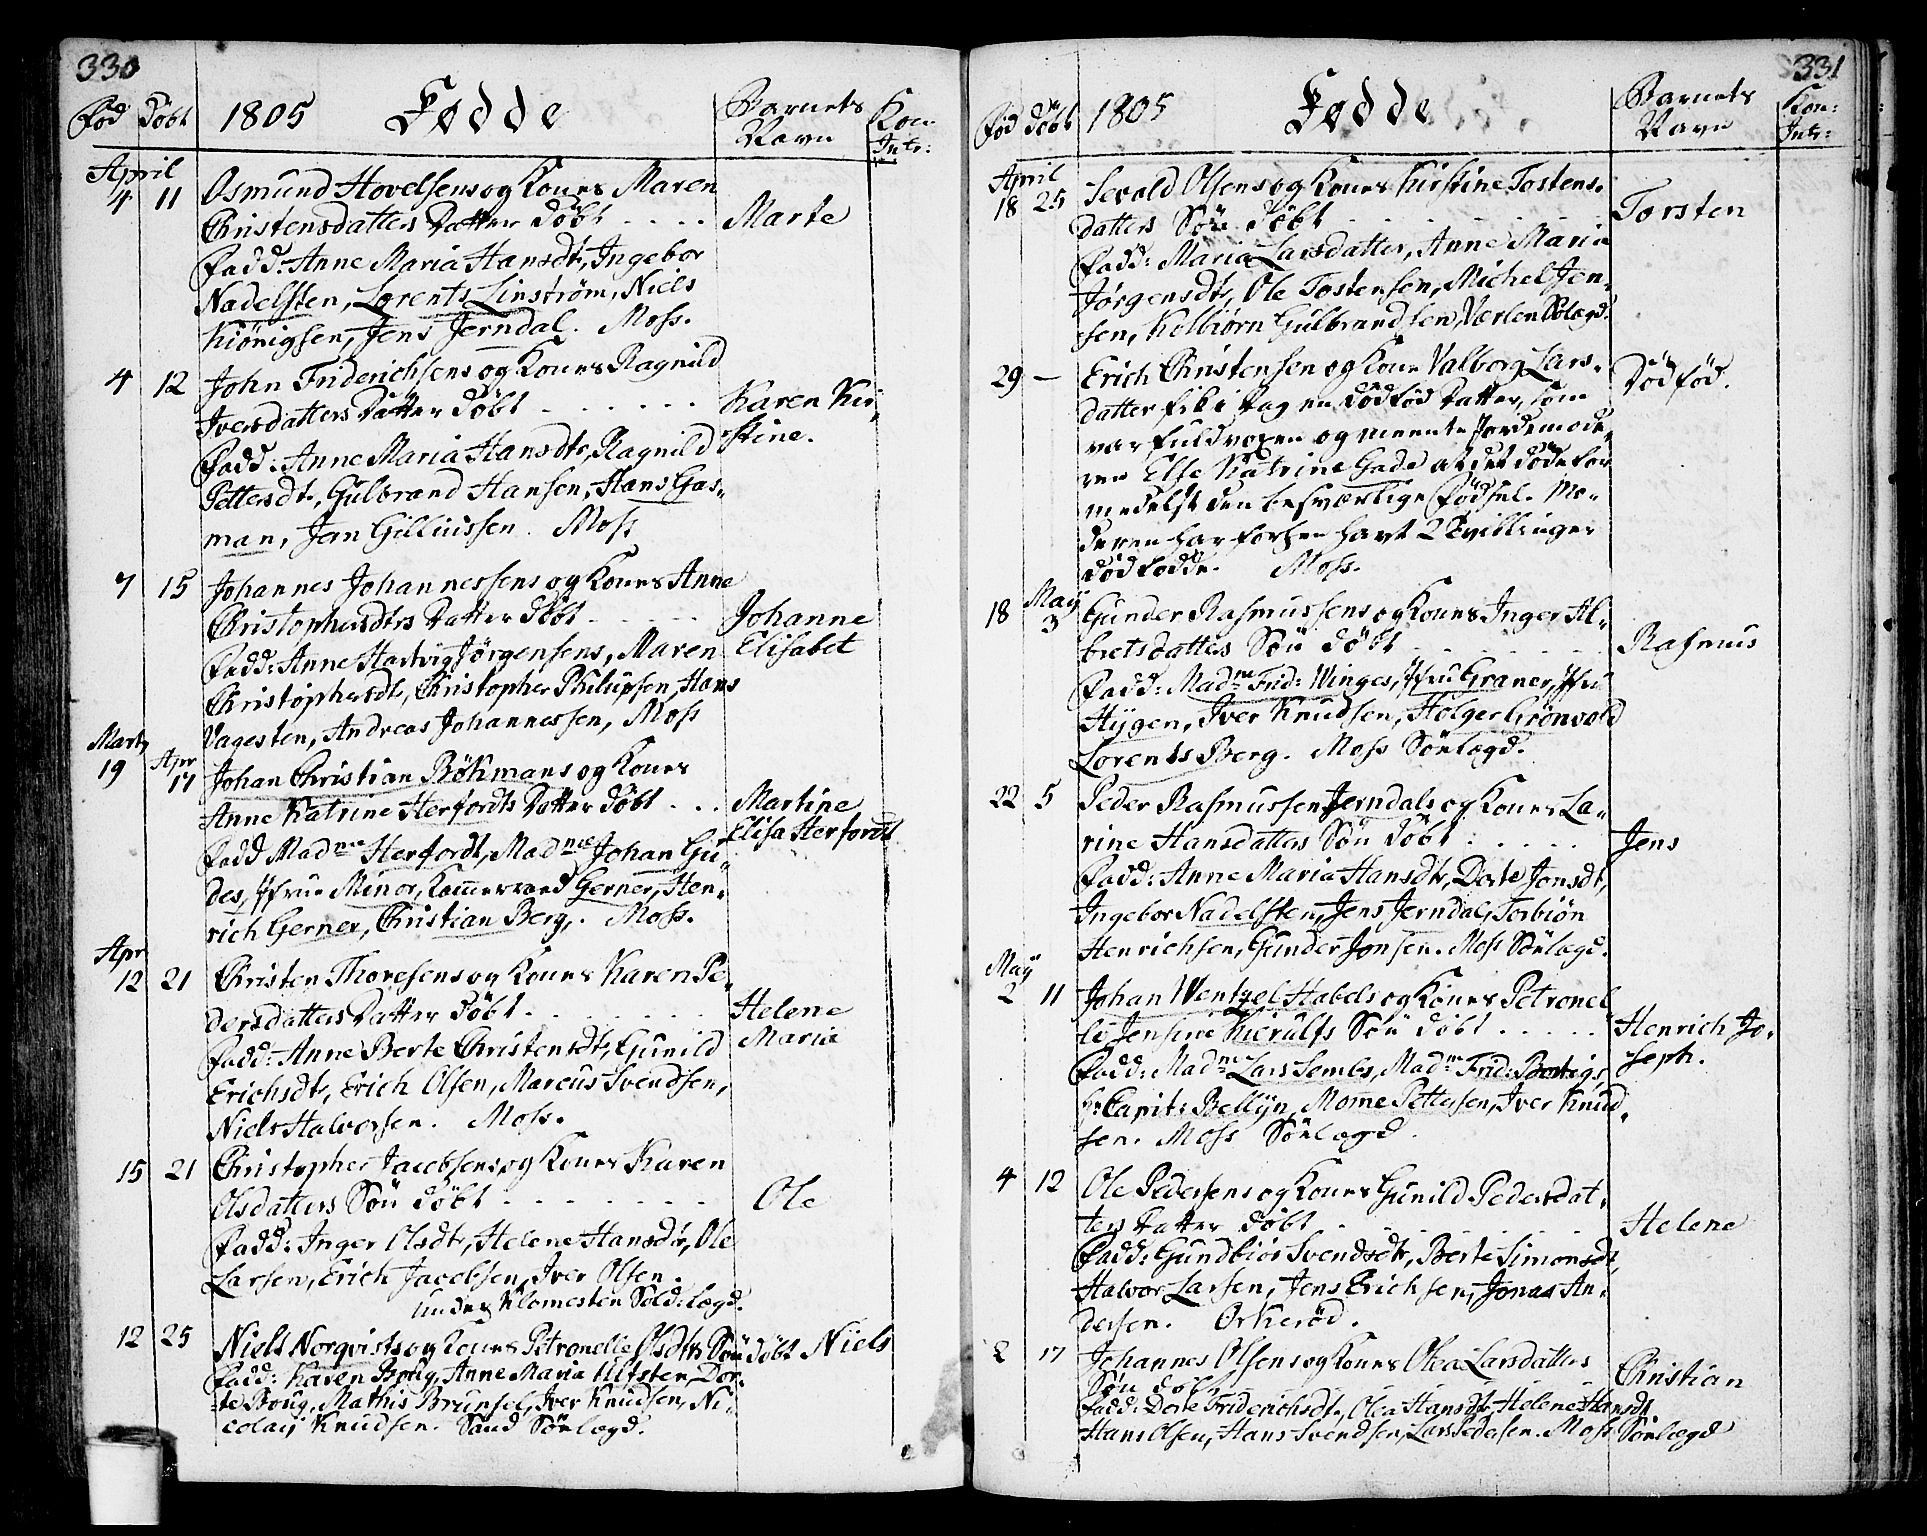 330
Fød Døbt 1805 Fødde Barnets Navn Kon: Intr:
April
4 11 Osmund Hovelsens og Kones Maren
Christensdatters Datter døbt . . . . Marte
Fadd: Anne Maria Hansdtr, Ingebor
Nadelsten, Lorents Linström, Niels
Kiönigsen, Jens Jerndal. Moss.
4 12 John Friderichsens og Kones Ragnild
Iversdatters Datter døbt . . . . . . Karen Kir-
stine.
Fadd: Anne Maria Hansdtr, Ragnild
Pettersdtr, Gulbrand Hansen, Hans Gas-
man, Jan Gilliussen. Moss
7 15 Johannes Johannessens og Kones Anne
Christophersdtrs Datter døbt . . . . . Johanne
Elisabet
Fadd: Anne Hartvig Jörgensens, Maren
Christophersdtr, Christopher Philupsen, Hans
Vagesten, Andreas Johannessen, Moss
Marty Apr
19 17 Johan Christian Bökmans og Kones
Anne Katrine Herfordts Datter døbt . . . Martine
Elisa Herfordt
Fadd Madme Herfordt, Madme Johan Gu-
des, Jfrue Minor, Kammerraad Gerner, Hen-
rich Gerner, Christian Berg,. Moss.
Apr
12 21 Christen Thoresens og Kones Karen Pe-
dersdatters Datter døbt . . . . . . . Helene
Maria
Fadd: Anne Berte Christensdtr, Gunild
Erichsdtr, Erich Olsen, Marcus Svendsen,
Niels Halvorsen. Moss.
15 21 Christopher Jacobsens og Kones Karen
Olsdatters Søn døbt . . . . . . . Ole
Fadd: Inger Olsdtr, Helene Hansdtr, Ole
Larsen, Erich Jacobsen, Iver Olsen.
under Klomesten Sold: lægd.
12 25 Niels Norqvists og Kones Petronelle Olsdtrs Søn døbt Niels
Fadd: Karen Boug, Anne Maria Ulfsten, Dor-
te Boug, Mathis Brunsel, Iver Knudsen, Ni-
colaij Knudsen. Sand Sönlægd.
331
Fød Døbt 1805 Fødde Barnets Navn Kon: Intr:
April
18 25 Sevald Olsens og Kones Kirstine Tostens-
datters Søn døbt . . . . . . . Torsten
Fadd: Maria Larsdatter, Anne Maria
Jörgensdtr, Ole Tostensen, Michel Jen-
sen, Kolbiørn Gulbrandsen, Varlen Solægd.
29 — Erich Christensen og Kone Valborg Lars-
datter fik i dag en dødfød Datter, som Dødfød.
var fuldvoxen og meente Jordemode-
ren Else Katrine Gade at det døde for
medelst den besværlige Fødsel. Mo-
deren har forhen havt 2 Tvillinger
dødfødde. Moss.
18 May 3 Gunder Rasmussens og Kones Inger Al-
bretsdatters Søn døbt . . . . . . . Rasmus
Fadd: Madme Frid: Winges, Jfru Graner, Jfru
Hygen, Iver Knudsen, Holger Grönvold
Lorents Berg. Moss Sönlægd.
22 5 Peder Rasmussen Jerndals og Kones La-
rine Hansdatters Søn døbt . . . . . Jens
Fadd: Anne Maria Hansdtr, Dorte Jonsdt,
Ingebor Nadelsten, Jens Jerndal, Torbiön
Henrichsen, Gunder Jonsen. Moss Sönlægd.
May
2 11 Johan Wentzel Habels og Kones Petronel
le Jensine Kierulfs Søn døbt . . . . . Henrich Jo-
seph.
Fadd: Madme Lars Sembs, Madme Frid:
hr Capit: Bellÿn, Mome Pettersen, Iver Knud-
sen. Moss Sönlægd.
4 12 Ole Pedersens og Kones Gunild Pedersdat-
ters Datter døbt . . . . . . . . Helene
Fadd: Gundbiør Svendsdtr, Berte Simonsdt,
Halvor Larsen, Jens Erichsen, Jonas An-
dersen. Orkerød.
2 17 Johannes Olsens og Kones Olea Larsdatters
Søn døbt . . . . . . . Christian
Fadd: Dorte Friderichsdtr, Olea Hansdtr, Helene Hansdt
Hans Olsen, Hans Svendsen, Lars Pedersen. Moss Sönlægd